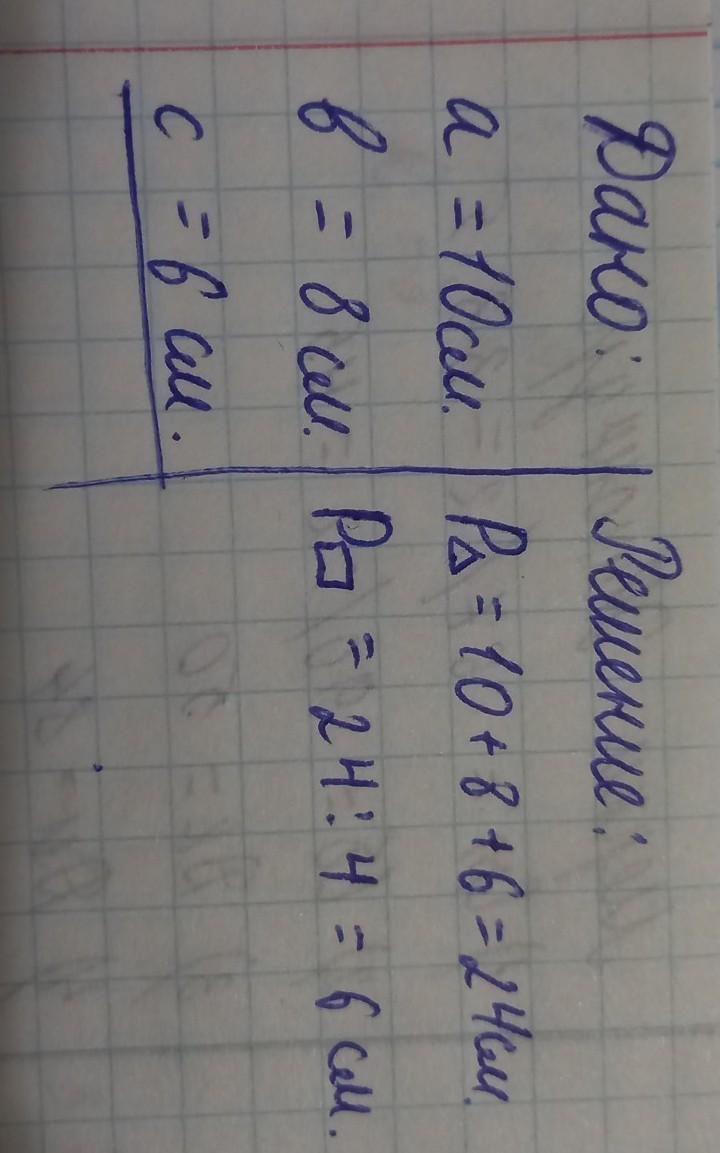 Дано:
a = 10см.
в = 8 см.
с = 6 см.
Решение:
P△ = 10 + 8 + 6 = 24см.
P□ = 24 : 4 = 6 см.